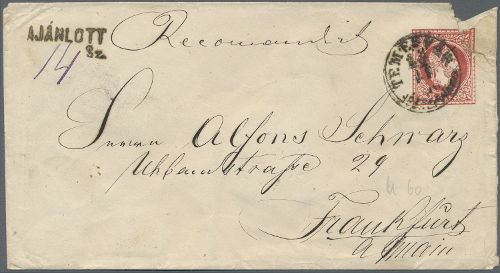 AJÁNLOTT
Sz.
14
Recomandirt
TEMESVÁR
Herrn Alfons Schwarz
Uhlandstraße 29
Frankfurt
a main